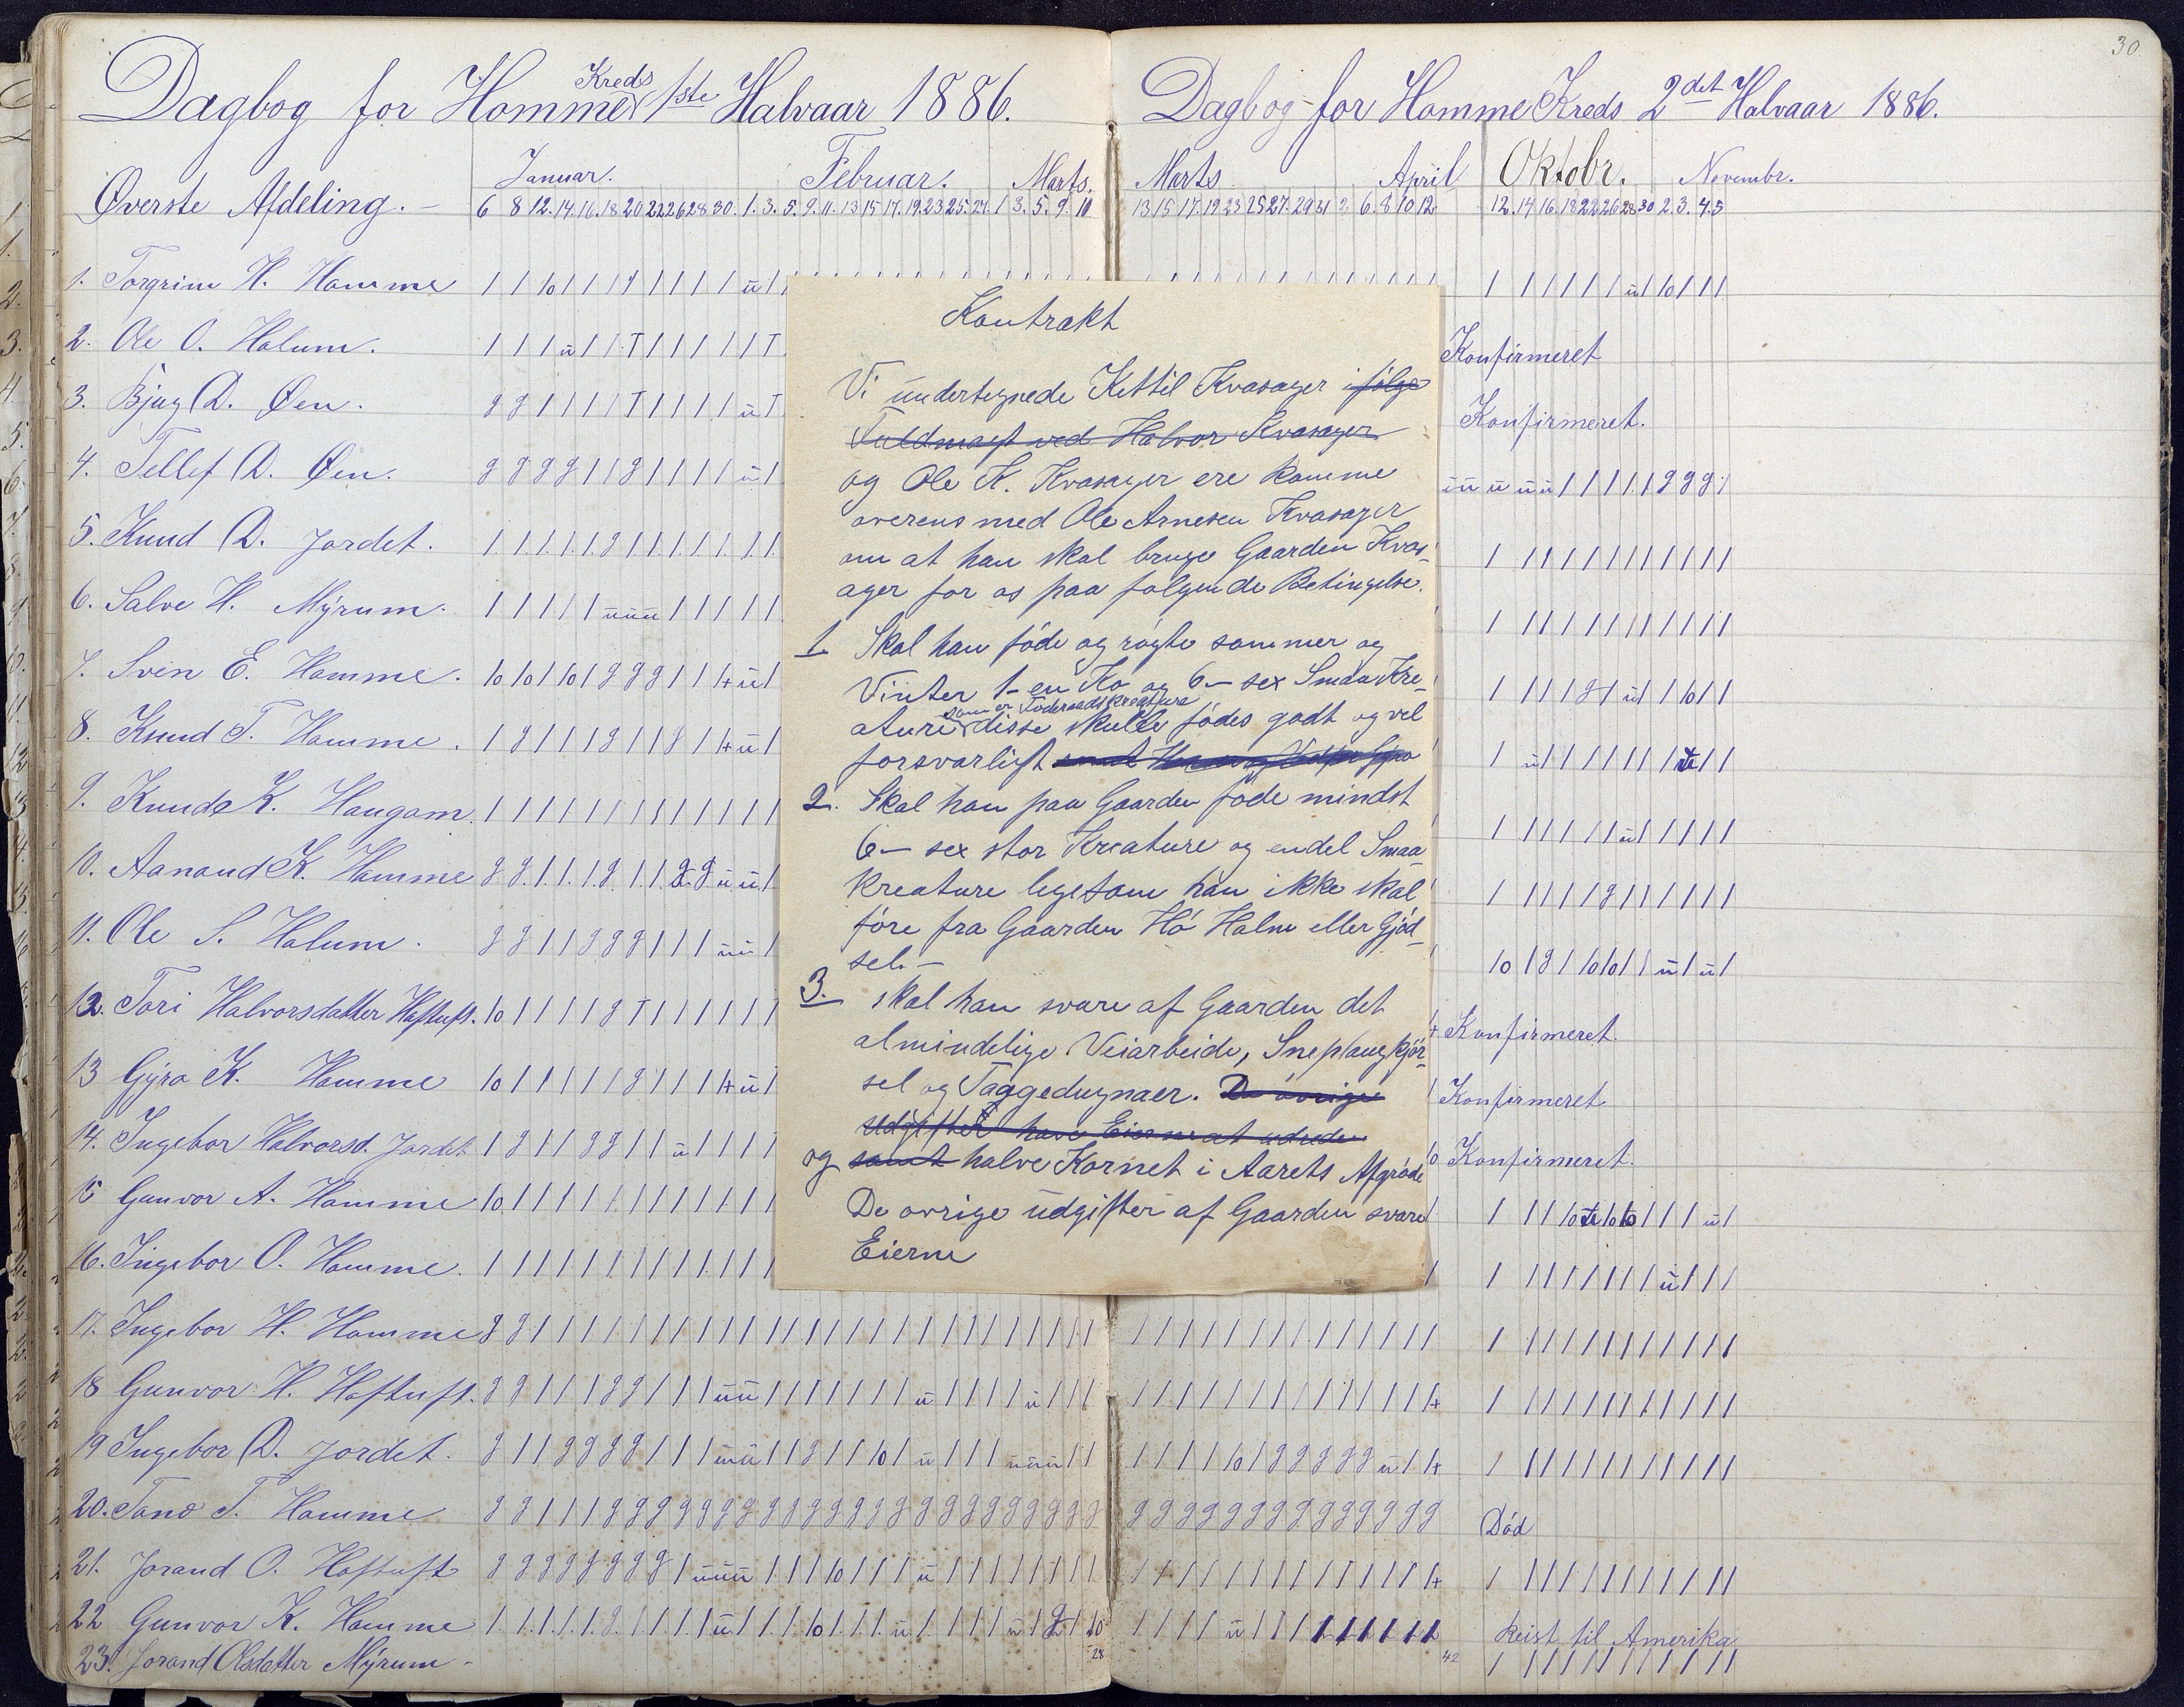 30
Dagbog for Homme Kreds 1ste Halvaar 1886.
Øverste Afdeling. –
Januar. Februar. Marts.
6 8 12. 14. 16. 18 20 22 26 28 30. 1. 3. 5. 9. 11. 13 15 17. 19. 23 25. 27. 1 3. 5. 9. 10
1. Torgrim H. Homme
2. Ole O. Holum.
3. Bjug D. Øen.
4. Tellef D. Øen.
5. Knud D. Jordet.
6. Salve H. Myrum.
7. Sven E. Homme.
8. Knud T. Homme.
9. Knud K. Haugom.
10. Aanaud K. Homme
11. Ole S. Holum.
12. Tori Halvorsdatter Haftuft.
13 Gyro K. Homme
14. Ingebor Halvorsd. Jordet
15 Gunvor A. Homme
16. Ingebor O. Homme.
17. Ingebor H. Homme
18 Gunvor H. Haftuft.
19 Ingebor D. Jordet.
20. Tone T. Homme
21. Jorand O. Haftuft
22 Gunvor K. Homme
23. Jorand Olsdatter Myrum –
28
Kontrakt
Vi undertegnede Kittil Kvasager ifølge
Fuldmagt ved Halvor Kvasager
og Ole K. Kvasager ere komme
overens med Ole Arnesen Kvasager
om at han skal bruge Gaarden Kvas-
ager for os paa følgende Betingelse.
1. Skal han föde og rögte sommer og
Vinter 1– en Ko og 6– sex Smaa Kre-
ature som er Föderaadskreature disse skulle födes godt og vel
forsvarligt samt
2. Skal han paa Gaarden föde mindst
6– sex stor Kreature og endel Smaa-
kreature ligesom han ikke skal
före fra Gaarden Hö Halm eller Gjöd-
sel. –
3. skal han svare af Gaarden det
almindelige Veiarbeide, Sneplougkjör-
sel og Taggedugnaer. De övrige
Udgifter have Eierne at udrede.
og samt halve Kornet i Aarets Afgröde
De övrige udgifter af Gaarden svare
Eierne
Dagbog for Homme Kreds 2det Halvaar 1886.
Marts April Oktobr. Novembr.
13 15 17. 19 23 25 27. 29 31 2. 6. 8 10 12. 12. 14 16. 18 22 26 28 30 2. 3. 4. 5
Konfirmeret
Konfirmeret.
Konfirmeret.
Konfirmeret
Konfirmeret.
Död
Reist til Amerika
42